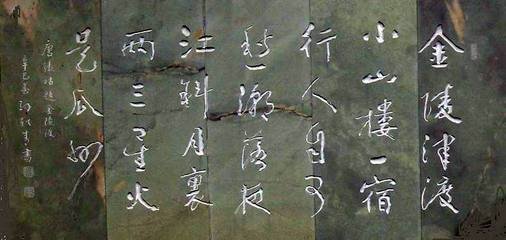 金陵津渡
小山樓一宿
行人自可
愁潮落夜
江斜月裏
兩三星火
是瓜州
唐張祜題金陵渡
辛巳
書